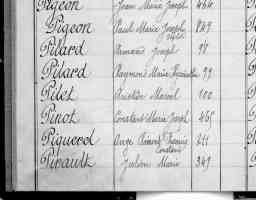 Pigeon Jean Marie Joseph 464
Pigeon Paul Marie Joseph 849
Pilard Armand Joseph 98
Pilard Raymond Marie 99
Pilet Aristide Marcel 100
Pinot Constant Marie Joseph 465
Piquerel Ange
Constant
Pivault Julien Marie 349